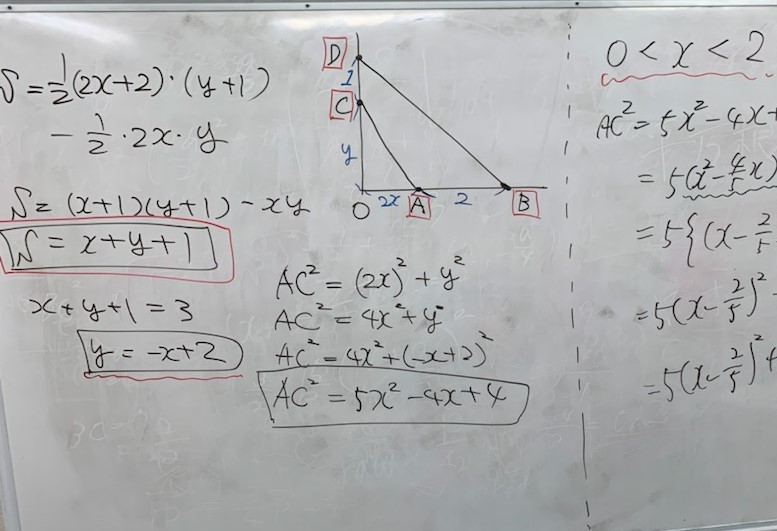 S = 1/2(2x+2)·(y+1)
- 1/2·2x·y
S = (x+1)(y+1) - xy
S = x+y+1
x+y+1 = 3
y = -x+2
D
1
C
y
O 2x A 2 B
AC² = (2x)² + y²
AC² = 4x² + y²
AC² = 4x² + (-x+2)²
AC² = 5x² - 4x + 4
0 < x < 2
AC² = 5x² - 4x +
= 5(x² - 4/5x)
= 5{(x - 2/5
= 5(x - 2/5)²
= 5(x - 2/5)² +